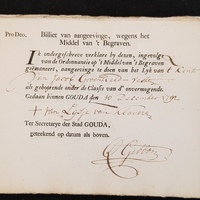 Pro Deo. Billiet van aangeevinge, wegens het
Middel van 't Begraven.
Ik ondergeschreve verklare by desen, ingevolge
van de Ordonnantie op 't middel van 't Begraven
geëmaneert, aangeevinge te doen van het Lyk van
Jacob
als gehoorende onder de Classe van d' onvermogende.
Gedaan binnen GOUDA den 10 December 1792
van
Ter Secretarye der Stad GOUDA,
geteekend op datum als boven.